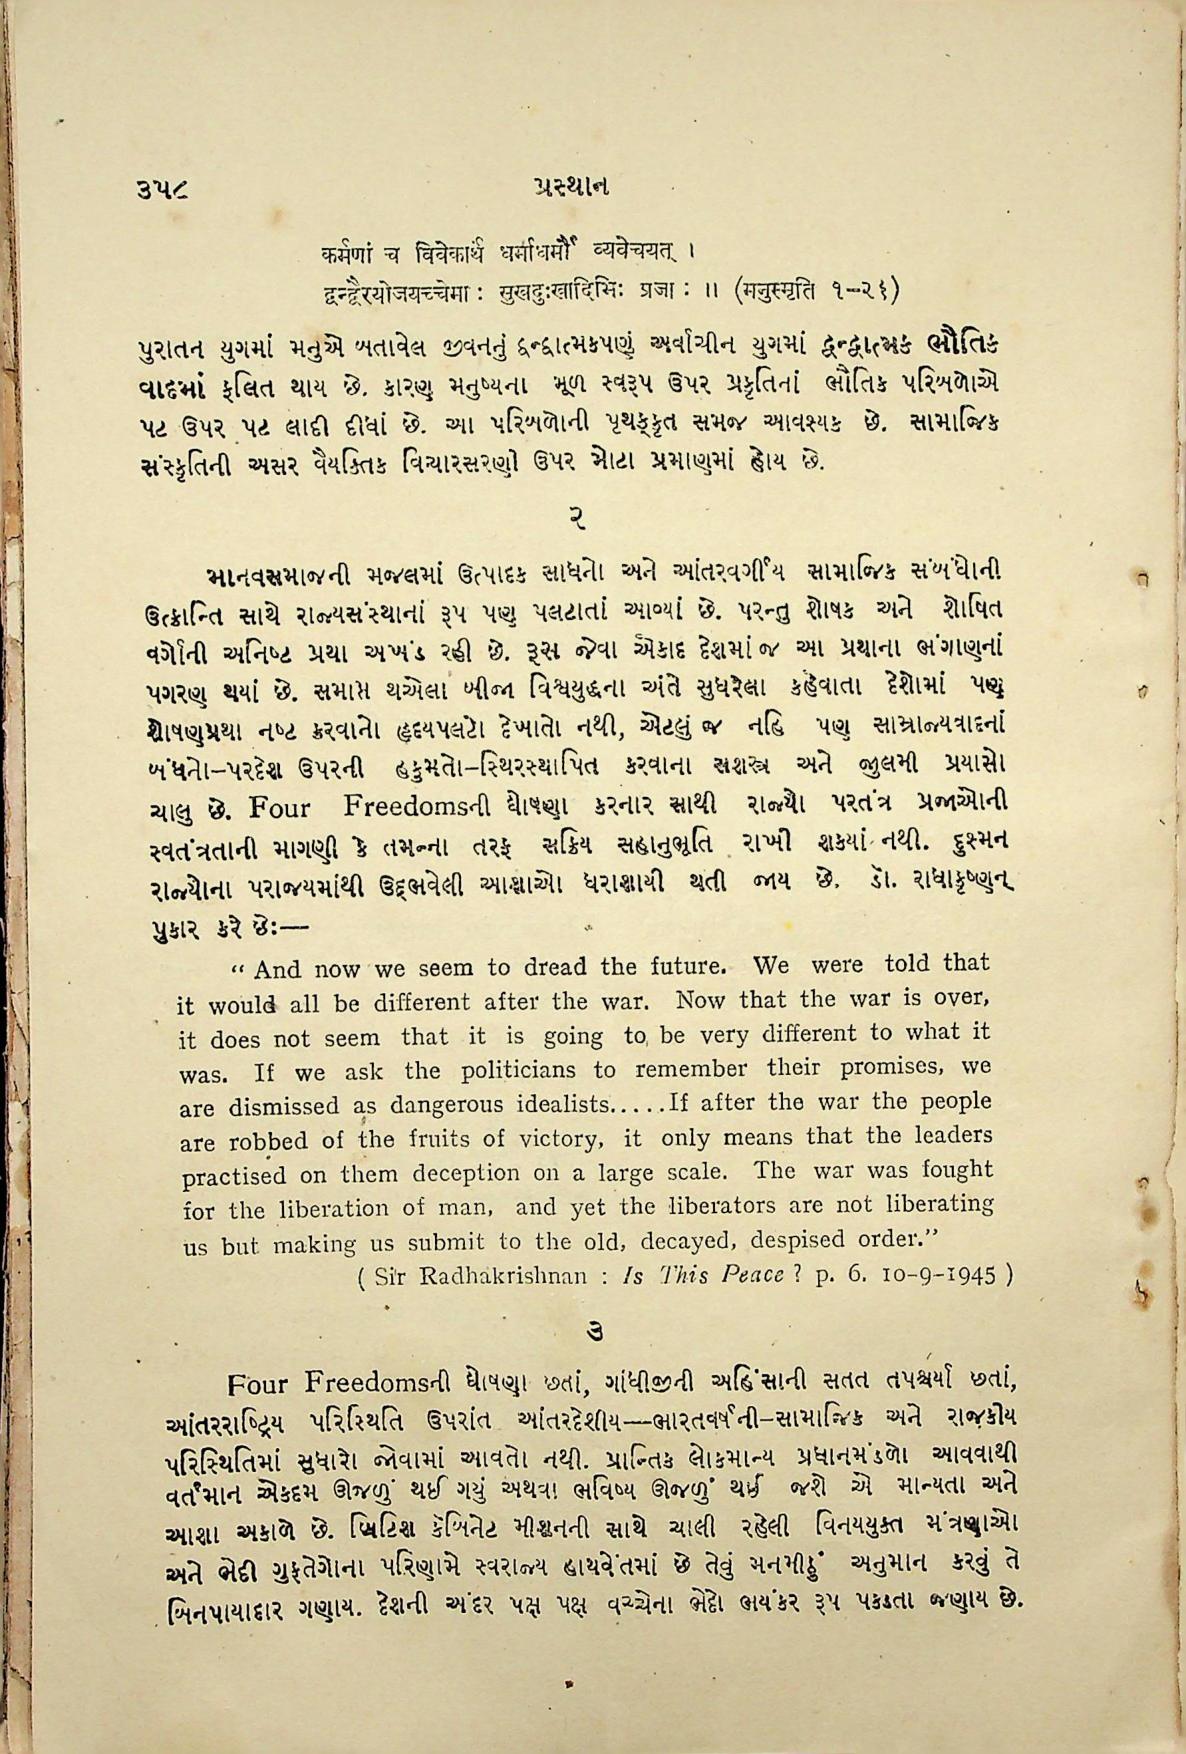 ૩૫૮
પ્રસ્થાન
कर्मणां च विवेकार्थं धर्माधर्मौ व्यवेचयत् ।
द्वन्द्वैरयोजयच्चेमाः सुखदुःखादिभिः प्रजाः ॥ (मनुस्मृति १–२६)
પુરાતન યુગમાં મનુએ બતાવેલ જીવનનું દ્વન્દ્વાત્મકપણું અર્વાચીન યુગમાં દ્વન્દ્વાત્મક ભૌતિક
વાદમાં ફલિત થાય છે. કારણ મનુષ્યના મૂળ સ્વરૂપ ઉપર પ્રકૃતિનાં ભૌતિક પરિબળોએ
પટ ઉપર પટ લાદી દીધાં છે. આ પરિબળોની પૃથક્કૃત સમજ આવશ્યક છે. સામાજિક
સંસ્કૃતિની અસર વૈયક્તિક વિચારસરણી ઉપર મોટા પ્રમાણમાં હોય છે.
૨
માનવસમાજની મજલમાં ઉત્પાદક સાધનો અને આંતરવર્ગીય સામાજિક સંબંધોની
ઉત્ક્રાન્તિ સાથે રાજ્યસંસ્થાનાં રૂપ પણ પલટાતાં આવ્યાં છે. પરન્તુ શોષક અને શોષિત
વર્ગોની અનિષ્ટ પ્રથા અખંડ રહી છે. રૂસ જેવા એકાદ દેશમાં જ આ પ્રથાના ભંગાણનાં
પગરણ થયાં છે. સમાપ્ત થએલા બીજા વિશ્વયુદ્ધના અંતે સુધરેલા કહેવાતા દેશોમાં પણ
શોષણપ્રથા નષ્ટ કરવાનો હૃદયપલટો દેખાતો નથી, એટલું જ નહિ પણ સામ્રાજ્યવાદનાં
બંધનો–પરદેશ ઉપરની હકુમતો–સ્થિરસ્થાપિત કરવાના સશસ્ત્ર અને જુલમી પ્રયાસો
ચાલુ છે. Four Freedomsની ઘોષણા કરનાર સાથી રાજ્યો પરતંત્ર પ્રજાઓની
સ્વતંત્રતાની માગણી કે તમન્ના તરફ સક્રિય સહાનુભૂતિ રાખી શકયાં નથી. દુશ્મન
રાજ્યોના પરાજયમાંથી ઉદ્દભવેલી આશાઓ ધરાશાયી થતી જાય છે. ડૉ. રાધાકૃષ્ણન્
પુકાર કરે છેઃ—
“ And now we seem to dread the future. We were told that
it would all be different after the war. Now that the war is over,
it does not seem that it is going to be very different to what it
was. If we ask the politicians to remember their promises, we
are dismissed as dangerous idealists.....If after the war the people
are robbed of the fruits of victory, it only means that the leaders
practised on them deception on a large scale. The war was fought
for the liberation of man, and yet the liberators are not liberating
us but making us submit to the old, decayed, despised order.”
( Sir Radhakrishnan : Is This Peace ? p. 6. 10-9-1945 )
૩
Four Freedomsની ઘોષણા છતાં, ગાંધીજીની અહિંસાની સતત તપશ્ચર્યા છતાં,
આંતરરાષ્ટ્રિય પરિસ્થિતિ ઉપરાંત આંતરદેશીય—ભારતવર્ષની–સામાજિક અને રાજકીય
પરિસ્થિતિમાં સુધારો જોવામાં આવતો નથી. પ્રાન્તિક લોકમાન્ય પ્રધાનમંડળો આવવાથી
વર્તમાન એકદમ ઊજળું થઈ ગયું અથવા ભવિષ્ય ઊજળું થઈ જશે એ માન્યતા અને
આશા અકાળે છે. બ્રિટિશ કૅબિનેટ મીશનની સાથે ચાલી રહેલી વિનયયુક્ત મંત્રણાઓ
અને ભેદી ગુફતેગોના પરિણામે સ્વરાજ્ય હાથવેંતમાં છે તેવું મનમીઠું અનુમાન કરવું તે
બિનપાયાદાર ગણાય. દેશની અંદર પક્ષ પક્ષ વચ્ચેના ભેદો ભયંકર રૂપ પકડતા જણાય છે.